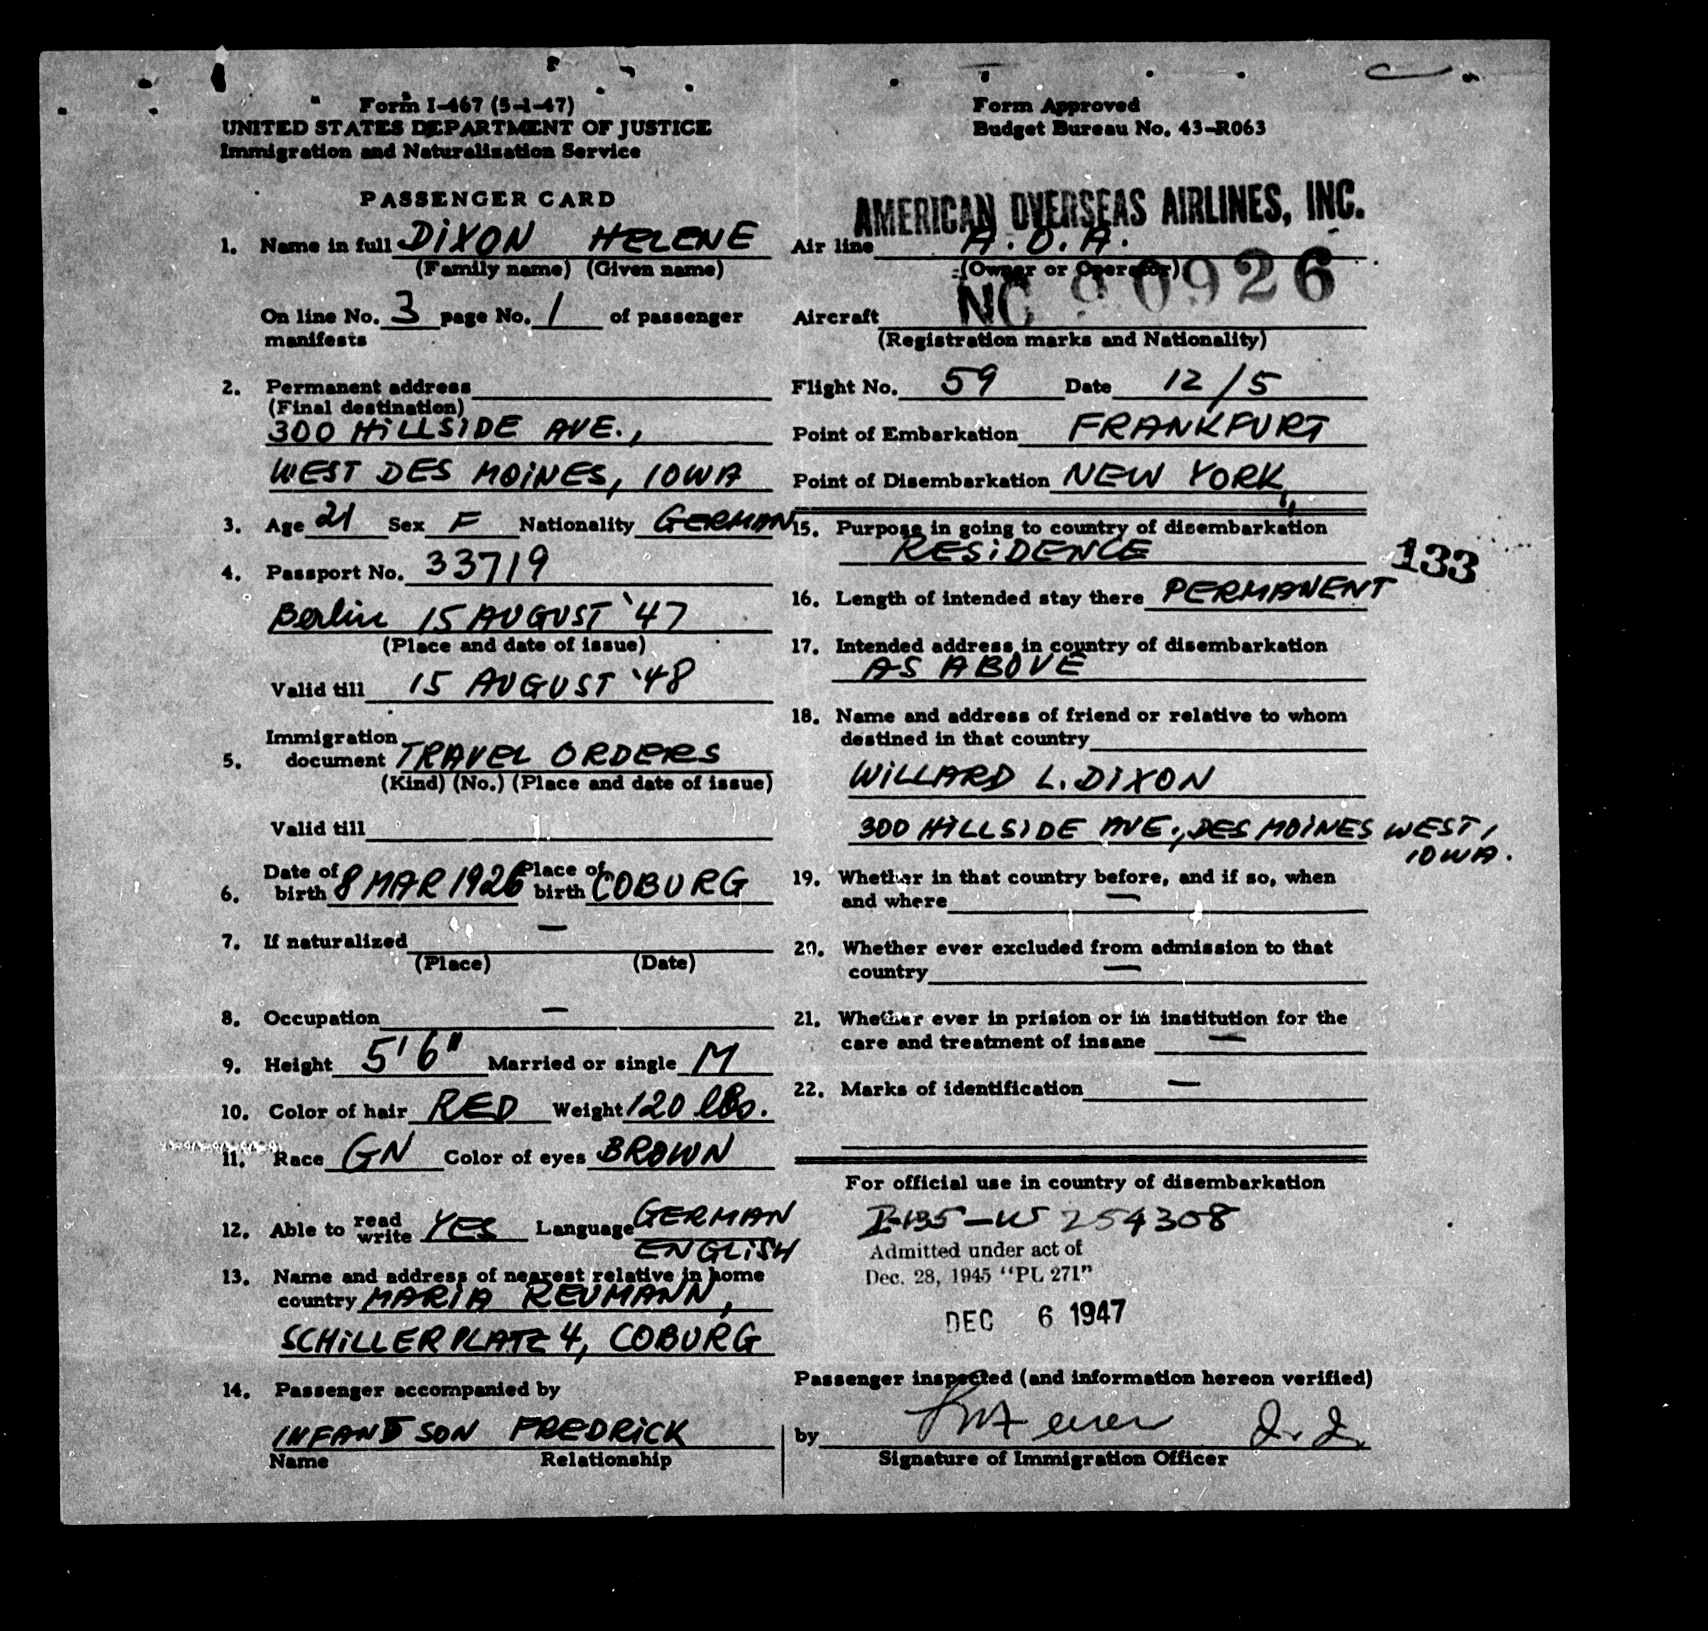 Form I-467 (5-1-47)
UNITED STATES DEPARTMENT OF JUSTICE
Immigration and Naturalization Service
PASSENGER CARD
1. Name in full DIXON HELENE
(Family name) (Given name)
On line No. 3 page No. 1 of passenger
manifests
2. Permanent address
(Final destination)
300 HILLSIDE AVE.,
WEST DES MOINES, IOWA
3. Age 21 Sex F Nationality GERMAN
4. Passport No. 33719
Berlin 15 AUGUST '47
(Place and date of issue)
Valid till 15 AUGUST '48
Immigration
5. document TRAVEL ORDERS
(Kind) (No.) (Place and date of issue)
Valid till
6. Date of birth 8 MAR 1926 Place of birth COBURG
7. If naturalized —
(Place) (Date)
8. Occupation —
9. Height 5'6" Married or single M
10. Color of hair RED Weight 120 lbs.
11. Race GN Color of eyes BROWN
12. Able to read write YES Language GERMAN
ENGLISH
13. Name and address of nearest relative in home
country MARIA REUMANN,
SCHILLERPLATZ 4, COBURG
14. Passenger accompanied by
INFANT SON FREDRICK
Name Relationship
Form Approved
Budget Bureau No. 43-R063
AMERICAN OVERSEAS AIRLINES, INC.
Air line A.O.A.
(Owner or Operator)
Aircraft NC 90926
(Registration marks and Nationality)
Flight No. 59 Date 12/5
Point of Embarkation FRANKFURT
Point of Disembarkation NEW YORK,
15. Purpose in going to country of disembarkation
RESIDENCE
133
16. Length of intended stay there PERMANENT
17. Intended address in country of disembarkation
AS ABOVE
18. Name and address of friend or relative to whom
destined in that country
WILLARD L. DIXON
300 HILLSIDE AVE., DES MOINES WEST,
IOWA.
19. Whether in that country before, and if so, when
and where —
20. Whether ever excluded from admission to that
country —
21. Whether ever in prision or in institution for the
care and treatment of insane —
22. Marks of identification —
For official use in country of disembarkation
254308
Admitted under act of
Dec. 28, 1945 "PL 271"
DEC 6 1947
Passenger inspected (and information hereon verified)
by
Signature of Immigration Officer